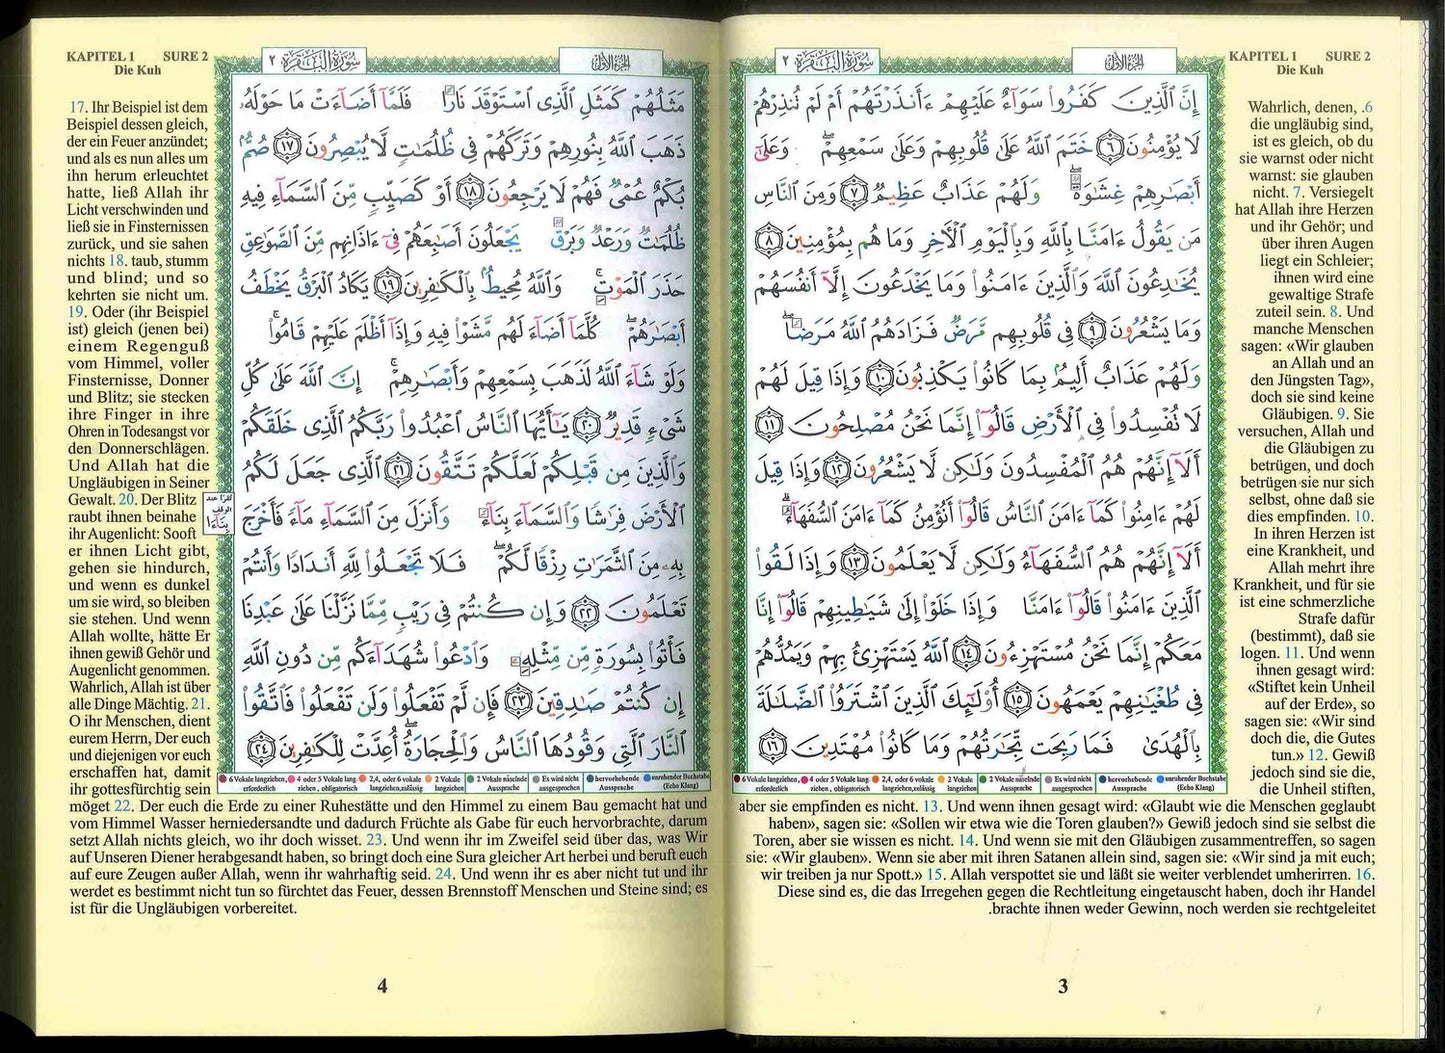 KAPITEL 1 SURE 2
Die Kuh
سورة البقرة ٢
الجزء الأول
إِنَّ ٱلَّذِينَ كَفَرُوا۟ سَوَآءٌ عَلَيْهِمْ ءَأَنذَرْتَهُمْ أَمْ لَمْ تُنذِرْهُمْ
لَا يُؤْمِنُونَ ٦ خَتَمَ ٱللَّهُ عَلَىٰ قُلُوبِهِمْ وَعَلَىٰ سَمْعِهِمْ ۖ وَعَلَىٰٓ
أَبْصَٰرِهِمْ غِشَٰوَةٌ ۖ وَلَهُمْ عَذَابٌ عَظِيمٌ ٧ وَمِنَ ٱلنَّاسِ
مَن يَقُولُ ءَامَنَّا بِٱللَّهِ وَبِٱلْيَوْمِ ٱلْءَاخِرِ وَمَا هُم بِمُؤْمِنِينَ ٨
يُخَٰدِعُونَ ٱللَّهَ وَٱلَّذِينَ ءَامَنُوا۟ وَمَا يَخْدَعُونَ إِلَّآ أَنفُسَهُمْ
وَمَا يَشْعُرُونَ ٩ فِى قُلُوبِهِم مَّرَضٌ فَزَادَهُمُ ٱللَّهُ مَرَضًا ۖ
وَلَهُمْ عَذَابٌ أَلِيمٌۢ بِمَا كَانُوا۟ يَكْذِبُونَ ١٠ وَإِذَا قِيلَ لَهُمْ
لَا تُفْسِدُوا۟ فِى ٱلْأَرْضِ قَالُوٓا۟ إِنَّمَا نَحْنُ مُصْلِحُونَ ١١
أَلَآ إِنَّهُمْ هُمُ ٱلْمُفْسِدُونَ وَلَٰكِن لَّا يَشْعُرُونَ ١٢ وَإِذَا قِيلَ
لَهُمْ ءَامِنُوا۟ كَمَآ ءَامَنَ ٱلنَّاسُ قَالُوٓا۟ أَنُؤْمِنُ كَمَآ ءَامَنَ ٱلسُّفَهَآءُ ۗ
أَلَآ إِنَّهُمْ هُمُ ٱلسُّفَهَآءُ وَلَٰكِن لَّا يَعْلَمُونَ ١٣ وَإِذَا لَقُوا۟
ٱلَّذِينَ ءَامَنُوا۟ قَالُوٓا۟ ءَامَنَّا وَإِذَا خَلَوْا۟ إِلَىٰ شَيَٰطِينِهِمْ قَالُوٓا۟ إِنَّا
مَعَكُمْ إِنَّمَا نَحْنُ مُسْتَهْزِءُونَ ١٤ ٱللَّهُ يَسْتَهْزِئُ بِهِمْ وَيَمُدُّهُمْ
فِى طُغْيَٰنِهِمْ يَعْمَهُونَ ١٥ أُو۟لَٰٓئِكَ ٱلَّذِينَ ٱشْتَرَوُا۟ ٱلضَّلَٰلَةَ
بِٱلْهُدَىٰ فَمَا رَبِحَت تِّجَٰرَتُهُمْ وَمَا كَانُوا۟ مُهْتَدِينَ ١٦
6 Vokale langziehen, erforderlich
4 oder 5 Vokale lang ziehen, obligatorisch
2,4, oder 6 vokale langziehen,zulässig
2 Vokale langziehen
2 Vokale näselnde Aussprache
Es wird nicht ausgesprochen
hervorhebende Aussprache
unruhender Buchstabe (Echo Klang)
Wahrlich, denen, .6
die ungläubig sind,
ist es gleich, ob du
sie warnst oder nicht
warnst: sie glauben
nicht. 7. Versiegelt
hat Allah ihre Herzen
und ihr Gehör; und
über ihren Augen
liegt ein Schleier;
ihnen wird eine
gewaltige Strafe
zuteil sein. 8. Und
manche Menschen
sagen: «Wir glauben
an Allah und an
den Jüngsten Tag»,
doch sie sind keine
Gläubigen. 9. Sie
versuchen, Allah und
die Gläubigen zu
betrügen, und doch
betrügen sie nur sich
selbst, ohne daß sie
dies empfinden. 10.
In ihren Herzen ist
eine Krankheit, und
Allah mehrt ihre
Krankheit, und für sie
ist eine schmerzliche
Strafe dafür
(bestimmt), daß sie
logen. 11. Und wenn
ihnen gesagt wird:
«Stiftet kein Unheil
auf der Erde», so
sagen sie: «Wir sind
doch die, die Gutes
tun.» 12. Gewiß
jedoch sind sie die,
die Unheil stiften,
aber sie empfinden es nicht. 13. Und wenn ihnen gesagt wird: «Glaubt wie die Menschen geglaubt
haben», sagen sie: «Sollen wir etwa wie die Toren glauben?» Gewiß jedoch sind sie selbst die
Toren, aber sie wissen es nicht. 14. Und wenn sie mit den Gläubigen zusammentreffen, so sagen
sie: «Wir glauben». Wenn sie aber mit ihren Satanen allein sind, sagen sie: «Wir sind ja mit euch;
wir treiben ja nur Spott.» 15. Allah verspottet sie und läßt sie weiter verblendet umherirren. 16.
Diese sind es, die das Irregehen gegen die Rechtleitung eingetauscht haben, doch ihr Handel
.brachte ihnen weder Gewinn, noch werden sie rechtgeleitet
3
KAPITEL 1 SURE 2
Die Kuh
سورة البقرة ٢
الجزء الأول
مَثَلُهُمْ كَمَثَلِ ٱلَّذِى ٱسْتَوْقَدَ نَارًا فَلَمَّآ أَضَآءَتْ مَا حَوْلَهُۥ
ذَهَبَ ٱللَّهُ بِنُورِهِمْ وَتَرَكَهُمْ فِى ظُلُمَٰتٍ لَّا يُبْصِرُونَ ١٧ صُمٌّۢ
بُكْمٌ عُمْىٌ فَهُمْ لَا يَرْجِعُونَ ١٨ أَوْ كَصَيِّبٍ مِّنَ ٱلسَّمَآءِ فِيهِ
ظُلُمَٰتٌ وَرَعْدٌ وَبَرْقٌ يَجْعَلُونَ أَصَٰبِعَهُمْ فِىٓ ءَاذَانِهِم مِّنَ ٱلصَّوَٰعِقِ
حَذَرَ ٱلْمَوْتِ ۚ وَٱللَّهُ مُحِيطٌۢ بِٱلْكَٰفِرِينَ ١٩ يَكَادُ ٱلْبَرْقُ يَخْطَفُ
أَبْصَٰرَهُمْ ۖ كُلَّمَآ أَضَآءَ لَهُم مَّشَوْا۟ فِيهِ وَإِذَآ أَظْلَمَ عَلَيْهِمْ قَامُوا۟ ۚ
وَلَوْ شَآءَ ٱللَّهُ لَذَهَبَ بِسَمْعِهِمْ وَأَبْصَٰرِهِمْ ۚ إِنَّ ٱللَّهَ عَلَىٰ كُلِّ
شَىْءٍ قَدِيرٌ ٢٠ يَٰٓأَيُّهَا ٱلنَّاسُ ٱعْبُدُوا۟ رَبَّكُمُ ٱلَّذِى خَلَقَكُمْ
وَٱلَّذِينَ مِن قَبْلِكُمْ لَعَلَّكُمْ تَتَّقُونَ ٢١ ٱلَّذِى جَعَلَ لَكُمُ
ٱلْأَرْضَ فِرَٰشًا وَٱلسَّمَآءَ بِنَآءً وَأَنزَلَ مِنَ ٱلسَّمَآءِ مَآءً فَأَخْرَجَ
بِهِۦ مِنَ ٱلثَّمَرَٰتِ رِزْقًا لَّكُمْ ۖ فَلَا تَجْعَلُوا۟ لِلَّهِ أَندَادًا وَأَنتُمْ
تَعْلَمُونَ ٢٢ وَإِن كُنتُمْ فِى رَيْبٍ مِّمَّا نَزَّلْنَا عَلَىٰ عَبْدِنَا
فَأْتُوا۟ بِسُورَةٍ مِّن مِّثْلِهِۦ وَٱدْعُوا۟ شُهَدَآءَكُم مِّن دُونِ ٱللَّهِ
إِن كُنتُمْ صَٰدِقِينَ ٢٣ فَإِن لَّمْ تَفْعَلُوا۟ وَلَن تَفْعَلُوا۟ فَٱتَّقُوا۟
ٱلنَّارَ ٱلَّتِى وَقُودُهَا ٱلنَّاسُ وَٱلْحِجَارَةُ ۖ أُعِدَّتْ لِلْكَٰفِرِينَ ٢٤
تقرأ عند
الوقف
بناءا
6 Vokale langziehen, erforderlich
4 oder 5 Vokale lang ziehen, obligatorisch
2,4, oder 6 vokale langziehen,zulässig
2 Vokale langziehen
2 Vokale näselnde Aussprache
Es wird nicht ausgesprochen
hervorhebende Aussprache
unruhender Buchstabe (Echo Klang)
17. Ihr Beispiel ist dem
Beispiel dessen gleich,
der ein Feuer anzündet;
und als es nun alles um
ihn herum erleuchtet
hatte, ließ Allah ihr
Licht verschwinden und
ließ sie in Finsternissen
zurück, und sie sahen
nichts 18. taub, stumm
und blind; und so
kehrten sie nicht um.
19. Oder (ihr Beispiel
ist) gleich (jenen bei)
einem Regenguß
vom Himmel, voller
Finsternisse, Donner
und Blitz; sie stecken
ihre Finger in ihre
Ohren in Todesangst vor
den Donnerschlägen.
Und Allah hat die
Ungläubigen in Seiner
Gewalt. 20. Der Blitz
raubt ihnen beinahe
ihr Augenlicht: Sooft
er ihnen Licht gibt,
gehen sie hindurch,
und wenn es dunkel
um sie wird, so bleiben
sie stehen. Und wenn
Allah wollte, hätte Er
ihnen gewiß Gehör und
Augenlicht genommen.
Wahrlich, Allah ist über
alle Dinge Mächtig. 21.
O ihr Menschen, dient
eurem Herrn, Der euch
und diejenigen vor euch
erschaffen hat, damit
ihr gottesfürchtig sein
möget 22. Der euch die Erde zu einer Ruhestätte und den Himmel zu einem Bau gemacht hat und
vom Himmel Wasser herniedersandte und dadurch Früchte als Gabe für euch hervorbrachte, darum
setzt Allah nichts gleich, wo ihr doch wisset. 23. Und wenn ihr im Zweifel seid über das, was Wir
auf Unseren Diener herabgesandt haben, so bringt doch eine Sura gleicher Art herbei und beruft euch
auf eure Zeugen außer Allah, wenn ihr wahrhaftig seid. 24. Und wenn ihr es aber nicht tut und ihr
werdet es bestimmt nicht tun so fürchtet das Feuer, dessen Brennstoff Menschen und Steine sind; es
ist für die Ungläubigen vorbereitet.
4